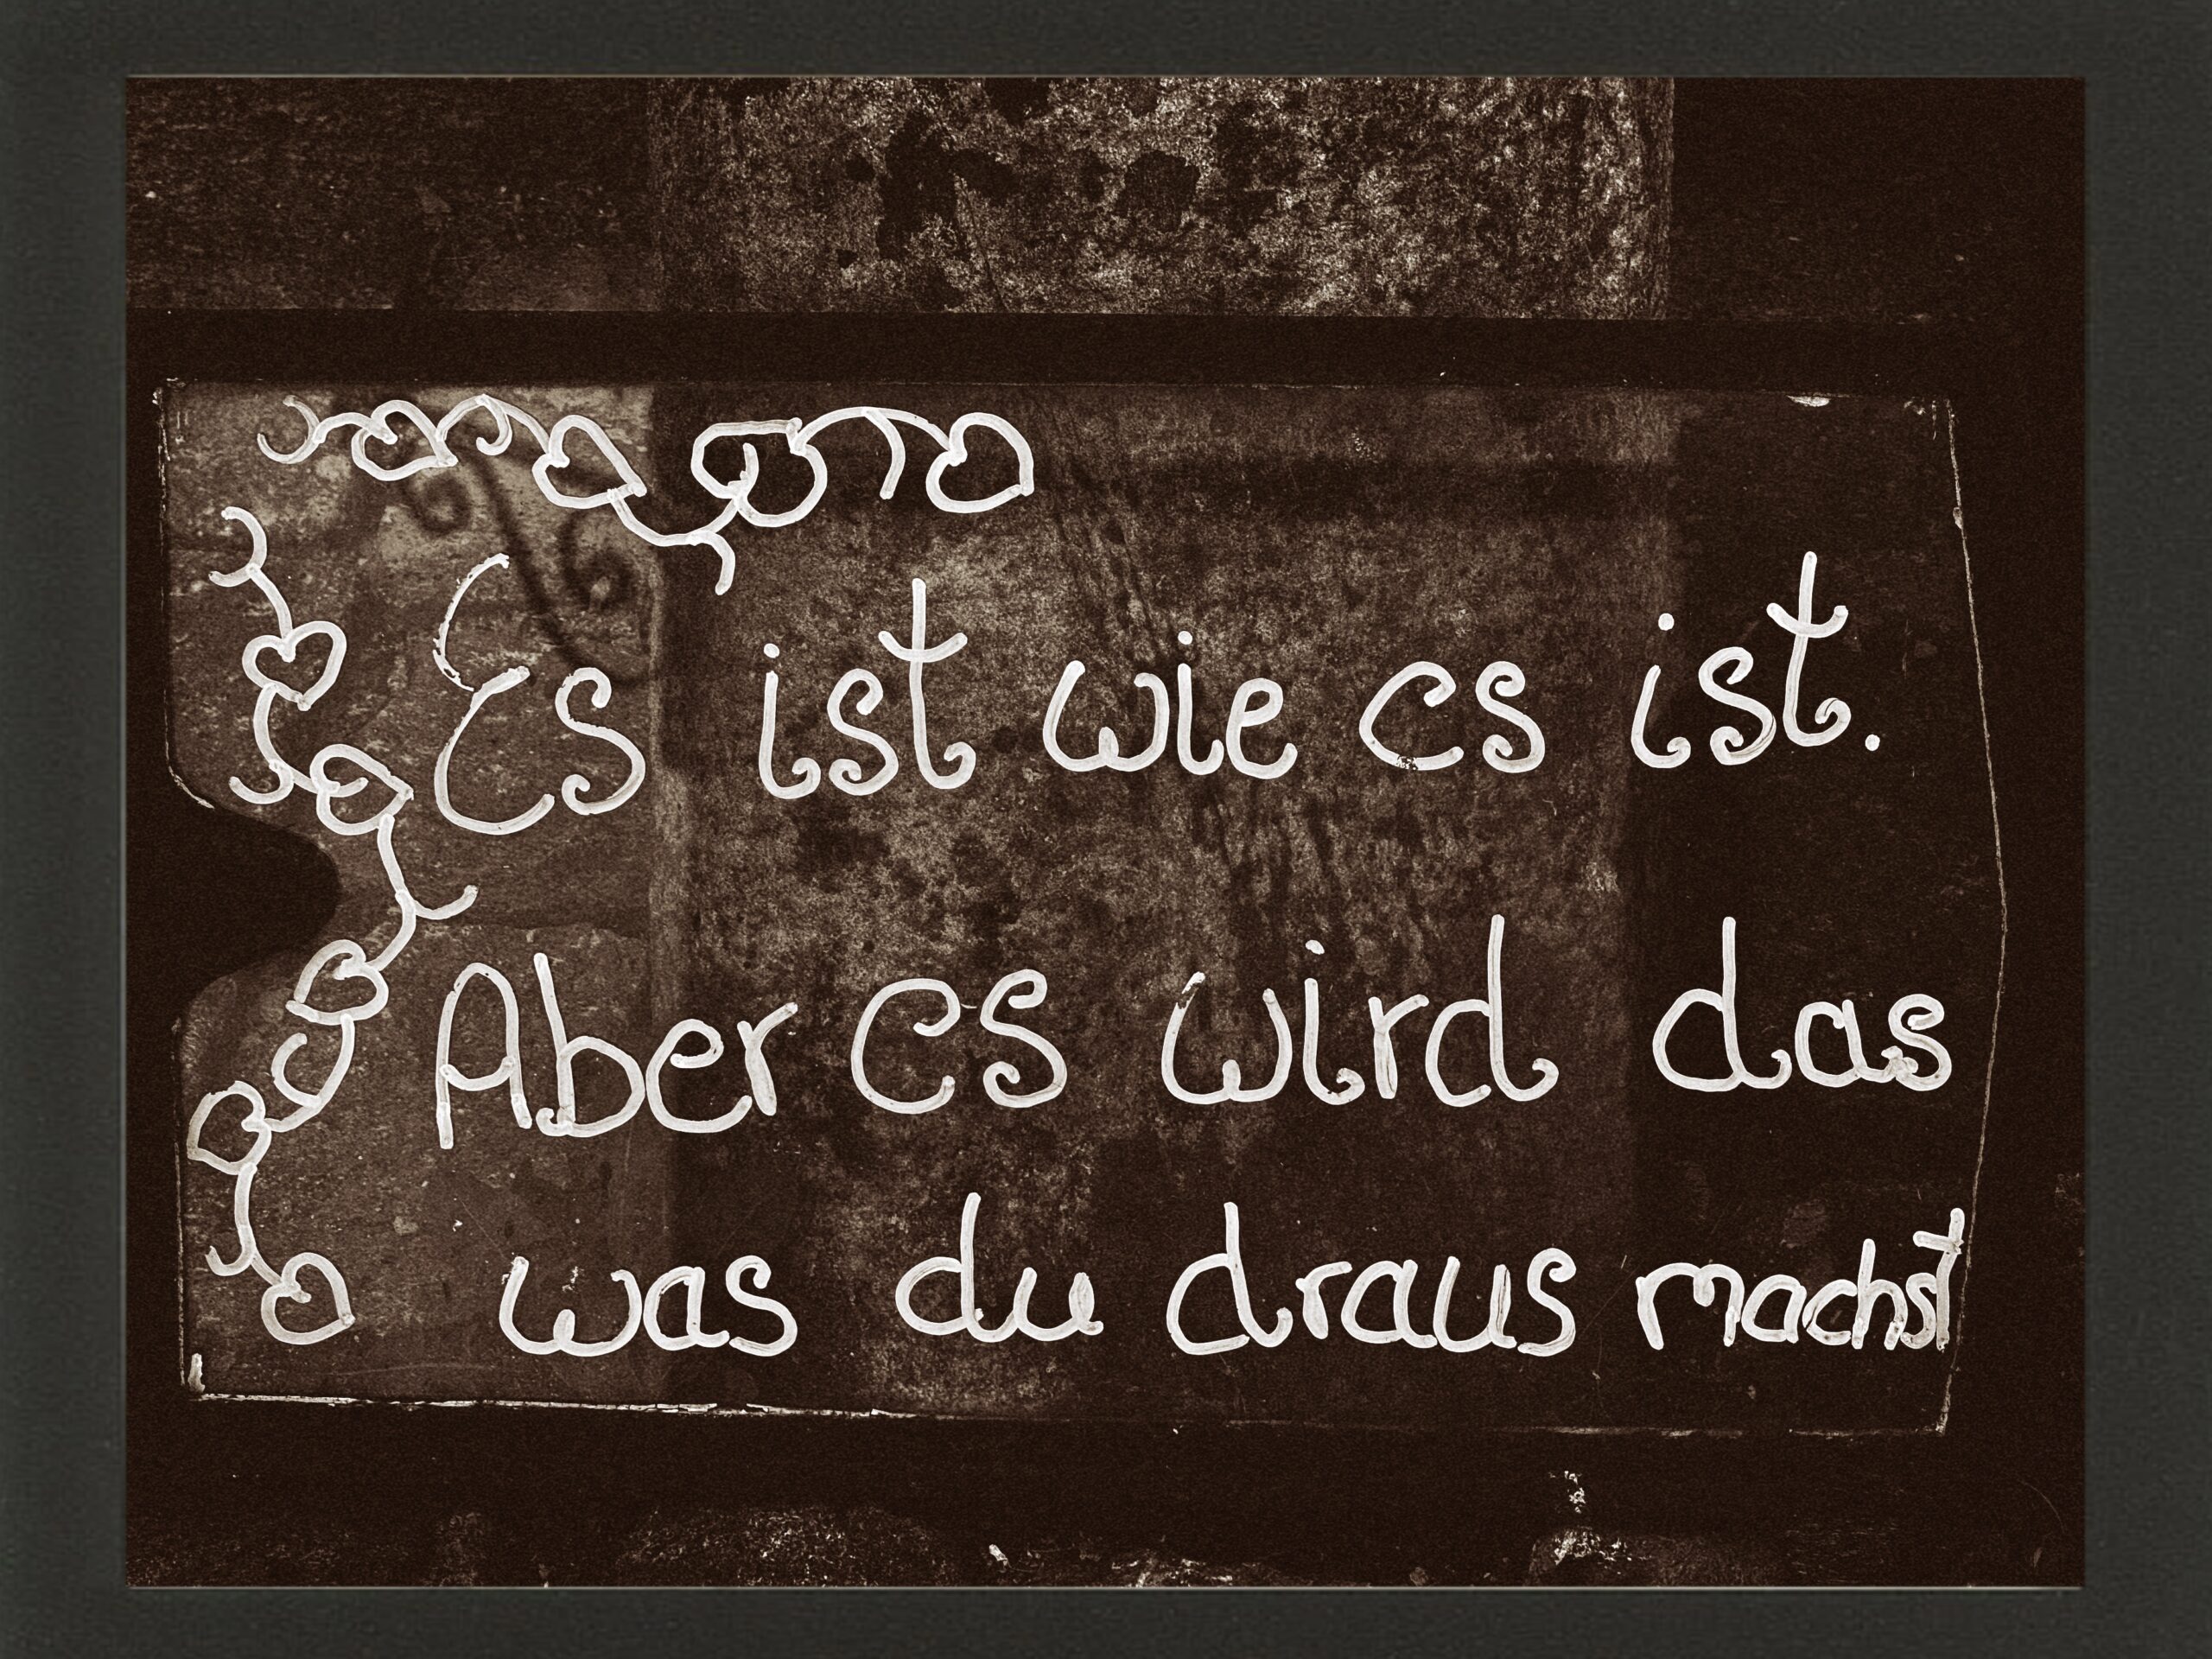 Es ist wie es ist.
Aber es wird das
was du draus machst